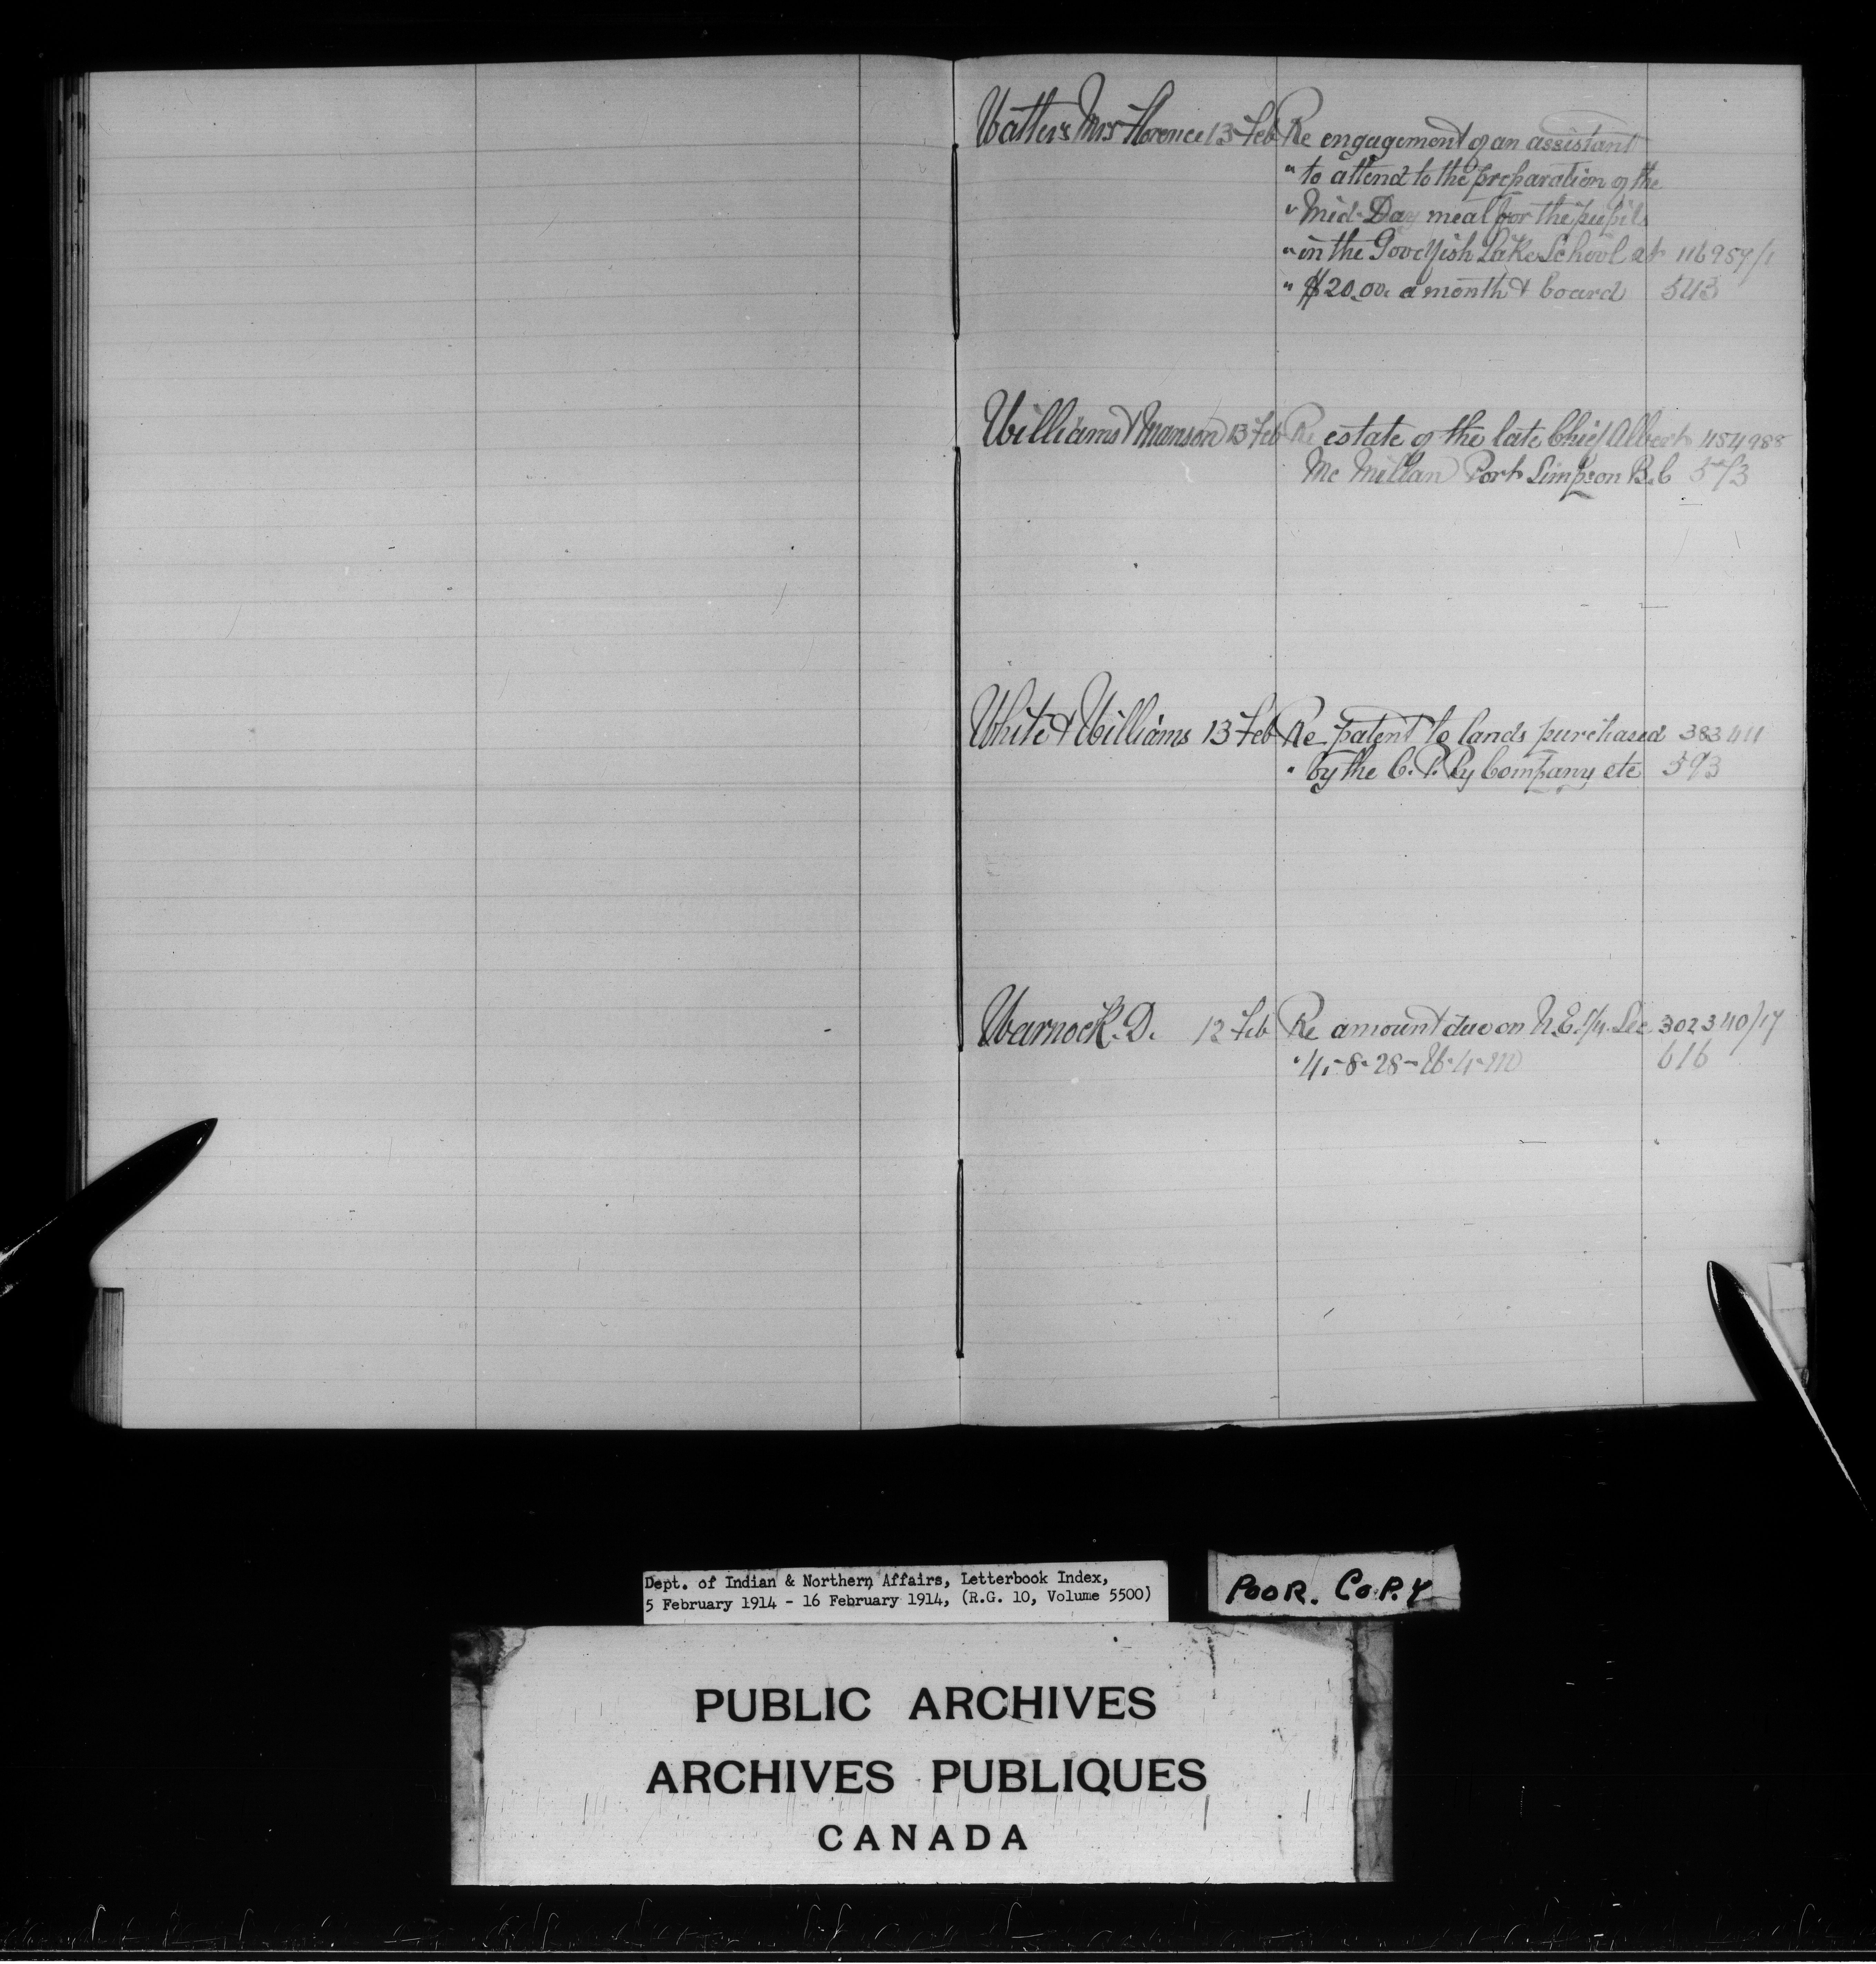 Watters Mrs Florence 13 Feb Re engagement of an assistant
" to attend to the preparation of the
" Mid-Day meal for the pupils
" in the Goodfish Lake School at 116957/1
" $20.00. a month & board 543
Williams & Manson 13 Feb Re estate of the late Chief Albert 454988
Mc Millan Port Simpson B.C 573
White & Williams 13 Feb Re patent to lands purchased 383411
" by the C. P. Ry Company etc 593
Warnock. D. 12 Feb Re amount due on N.E. 1/4. Sec 302340/17
" 4.-8-28-W-4-M 616
Dept. of Indian & Northern Affairs, Letterbook Index,
5 February 1914 - 16 February 1914, (R.G. 10, Volume 5500)
POOR. COPY
PUBLIC ARCHIVES
ARCHIVES PUBLIQUES
CANADA